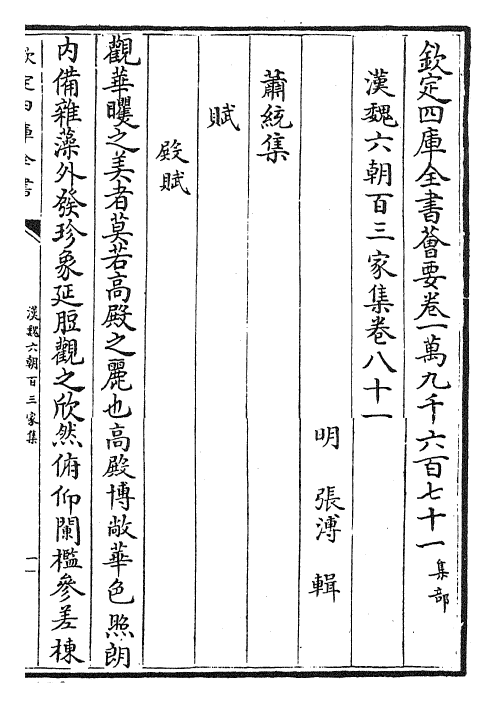 欽定四庫全書薈要卷一萬九千六百七十一 集部
漢魏六朝百三家集卷八十一
明 張溥 輯
蕭統集
賦
殿賦
觀華曜之美者莫若高殿之麗也高殿博敞華色照朗
內備雜藻外發珍象延脰觀之欣然俯仰闌檻參差棟
欽定四庫全書
漢魏六朝百三家集
一